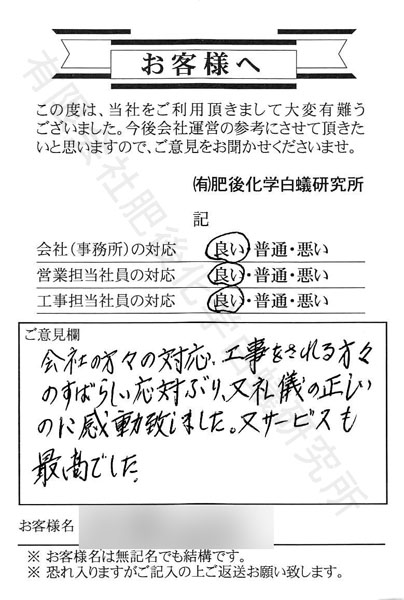 お客様へ
この度は、当社をご利用頂きまして大変有難う
ございました。今後会社運営の参考にさせて頂きた
いと思いますので、ご意見をお聞かせくださいませ。
㈲肥後化学白蟻研究所
記
会社(事務所)の対応 良い・普通・悪い
営業担当社員の対応 良い・普通・悪い
工事担当社員の対応 良い・普通・悪い
ご意見欄
会社の方々の対応、工事をされる方々
のすばらしい応対ぶり、又礼儀の正しい
のに感動致しました。又サービスも
最高でした。
お客様名
※ お客様名は無記名でも結構です。
※ 恐れ入りますがご記入の上ご返送お願い致します。
有限会社肥後化学白蟻研究所